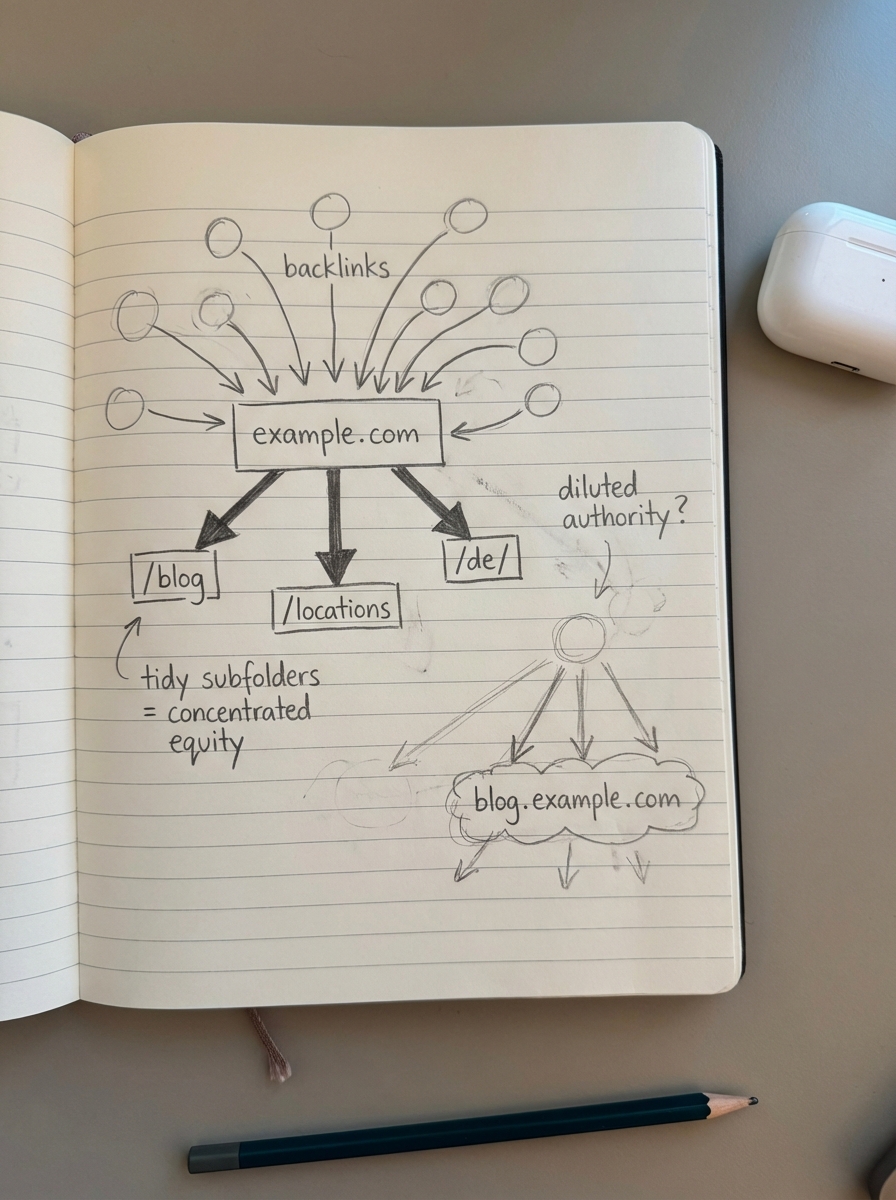 backlinks
example.com
diluted
authority?
/blog
/de/
/locations
tidy subfolders
= concentrated
equity
blog.example.com